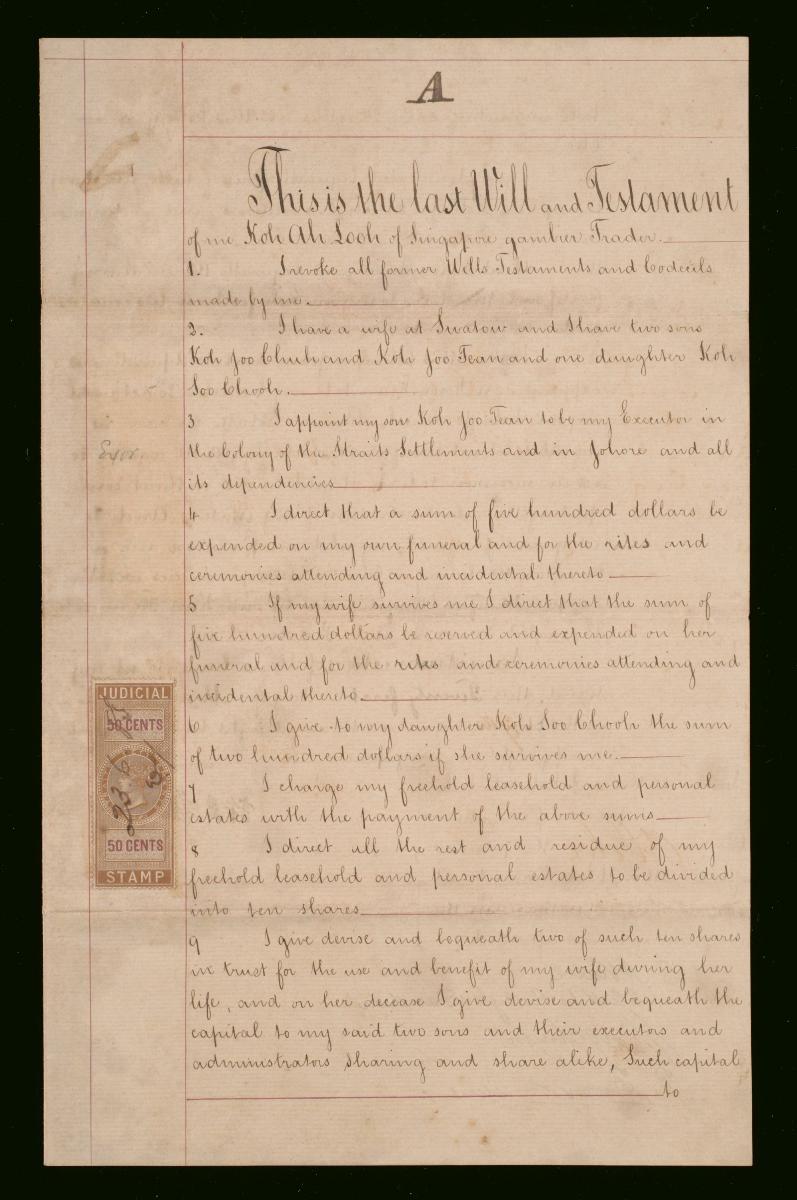 A
This is the last Will and Testament
of me Koh Ah Looh of Singapore gambier Trader.
1. I revoke all former Wills Testaments and Codecils
made by me.
2. I have a wife at Swatow and I have two sons
Koh Joo Chuh and Koh Joo Tean and one daughter Koh
Soo Chooh.
3 I appoint my son Koh Joo Tean to be my Executor in
the Colony of the Straits Settlements and in Johore and all
Exor.
its dependencies
4 I direct that a sum of five hundred dollars be
expended on my own funeral and for the rites and
ceremonies attending and incidental thereto
5 If my wife survives me I direct that the sum of
five hundred dollars be reserved and expended on her
funeral and for the rites and ceremonies attending and
incidental thereto.
6 I give to my daughter Koh Soo Chooh the sum
of two hundred dollars if she survives me.
7 I charge my freehold leasehold and personal
estates with the payment of the above sums
8 I direct all the rest and residue of my
freehold leasehold and personal estates to be divided
into ten shares
9 I give devise and bequeath two of such ten shares
in trust for the use and benefit of my wife during her
life, and on her decease I give devise and bequeath the
capital to my said two sons and their executors and
administrators sharing and share alike, Such capital
to
JUDICIAL
50 CENTS
50 CENTS
STAMP